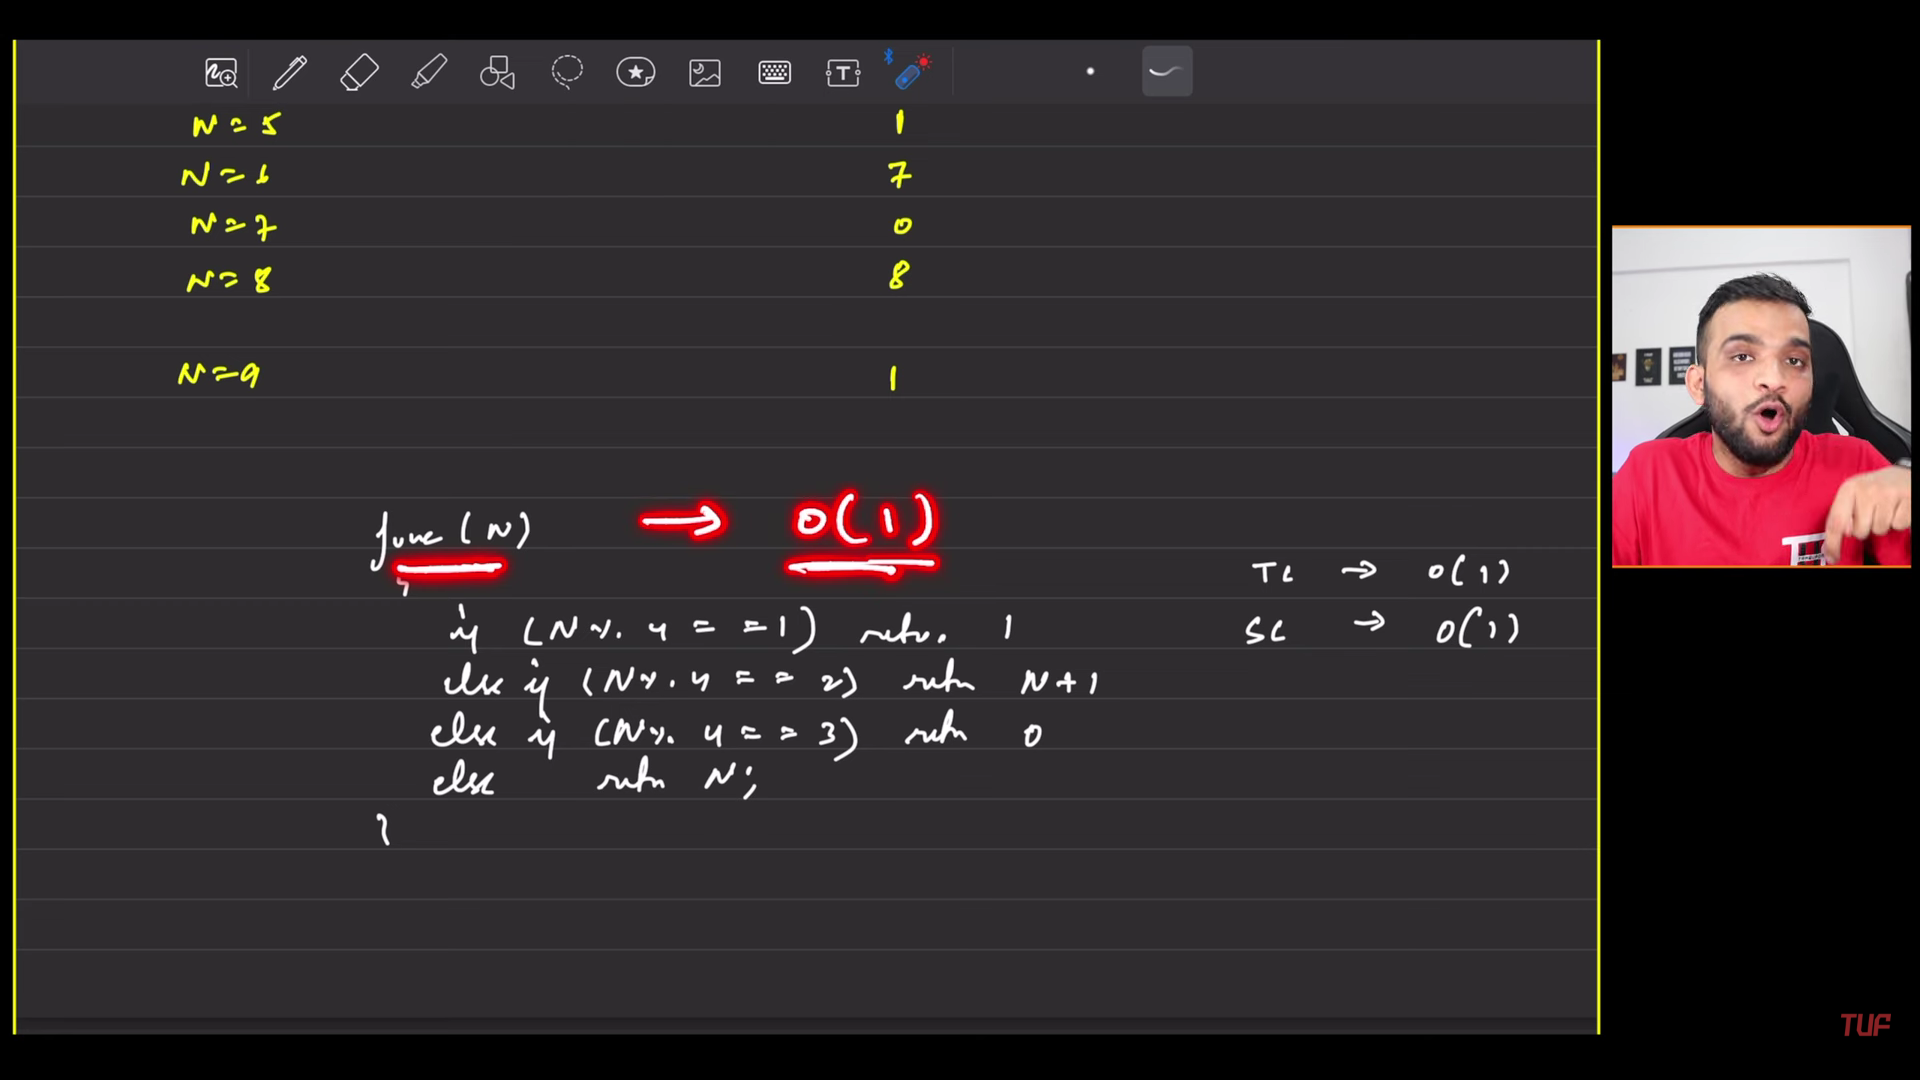 N = 5 1
N = 6 7
N = 7 0
N = 8 8
N = 9 1
func (N) → O(1)
{
TC → O(1)
if (N % 4 == 1) return 1
SC → O(1)
else if (N % 4 == 2) return N+1
else if (N % 4 == 3) return 0
else return N;
}
TUF